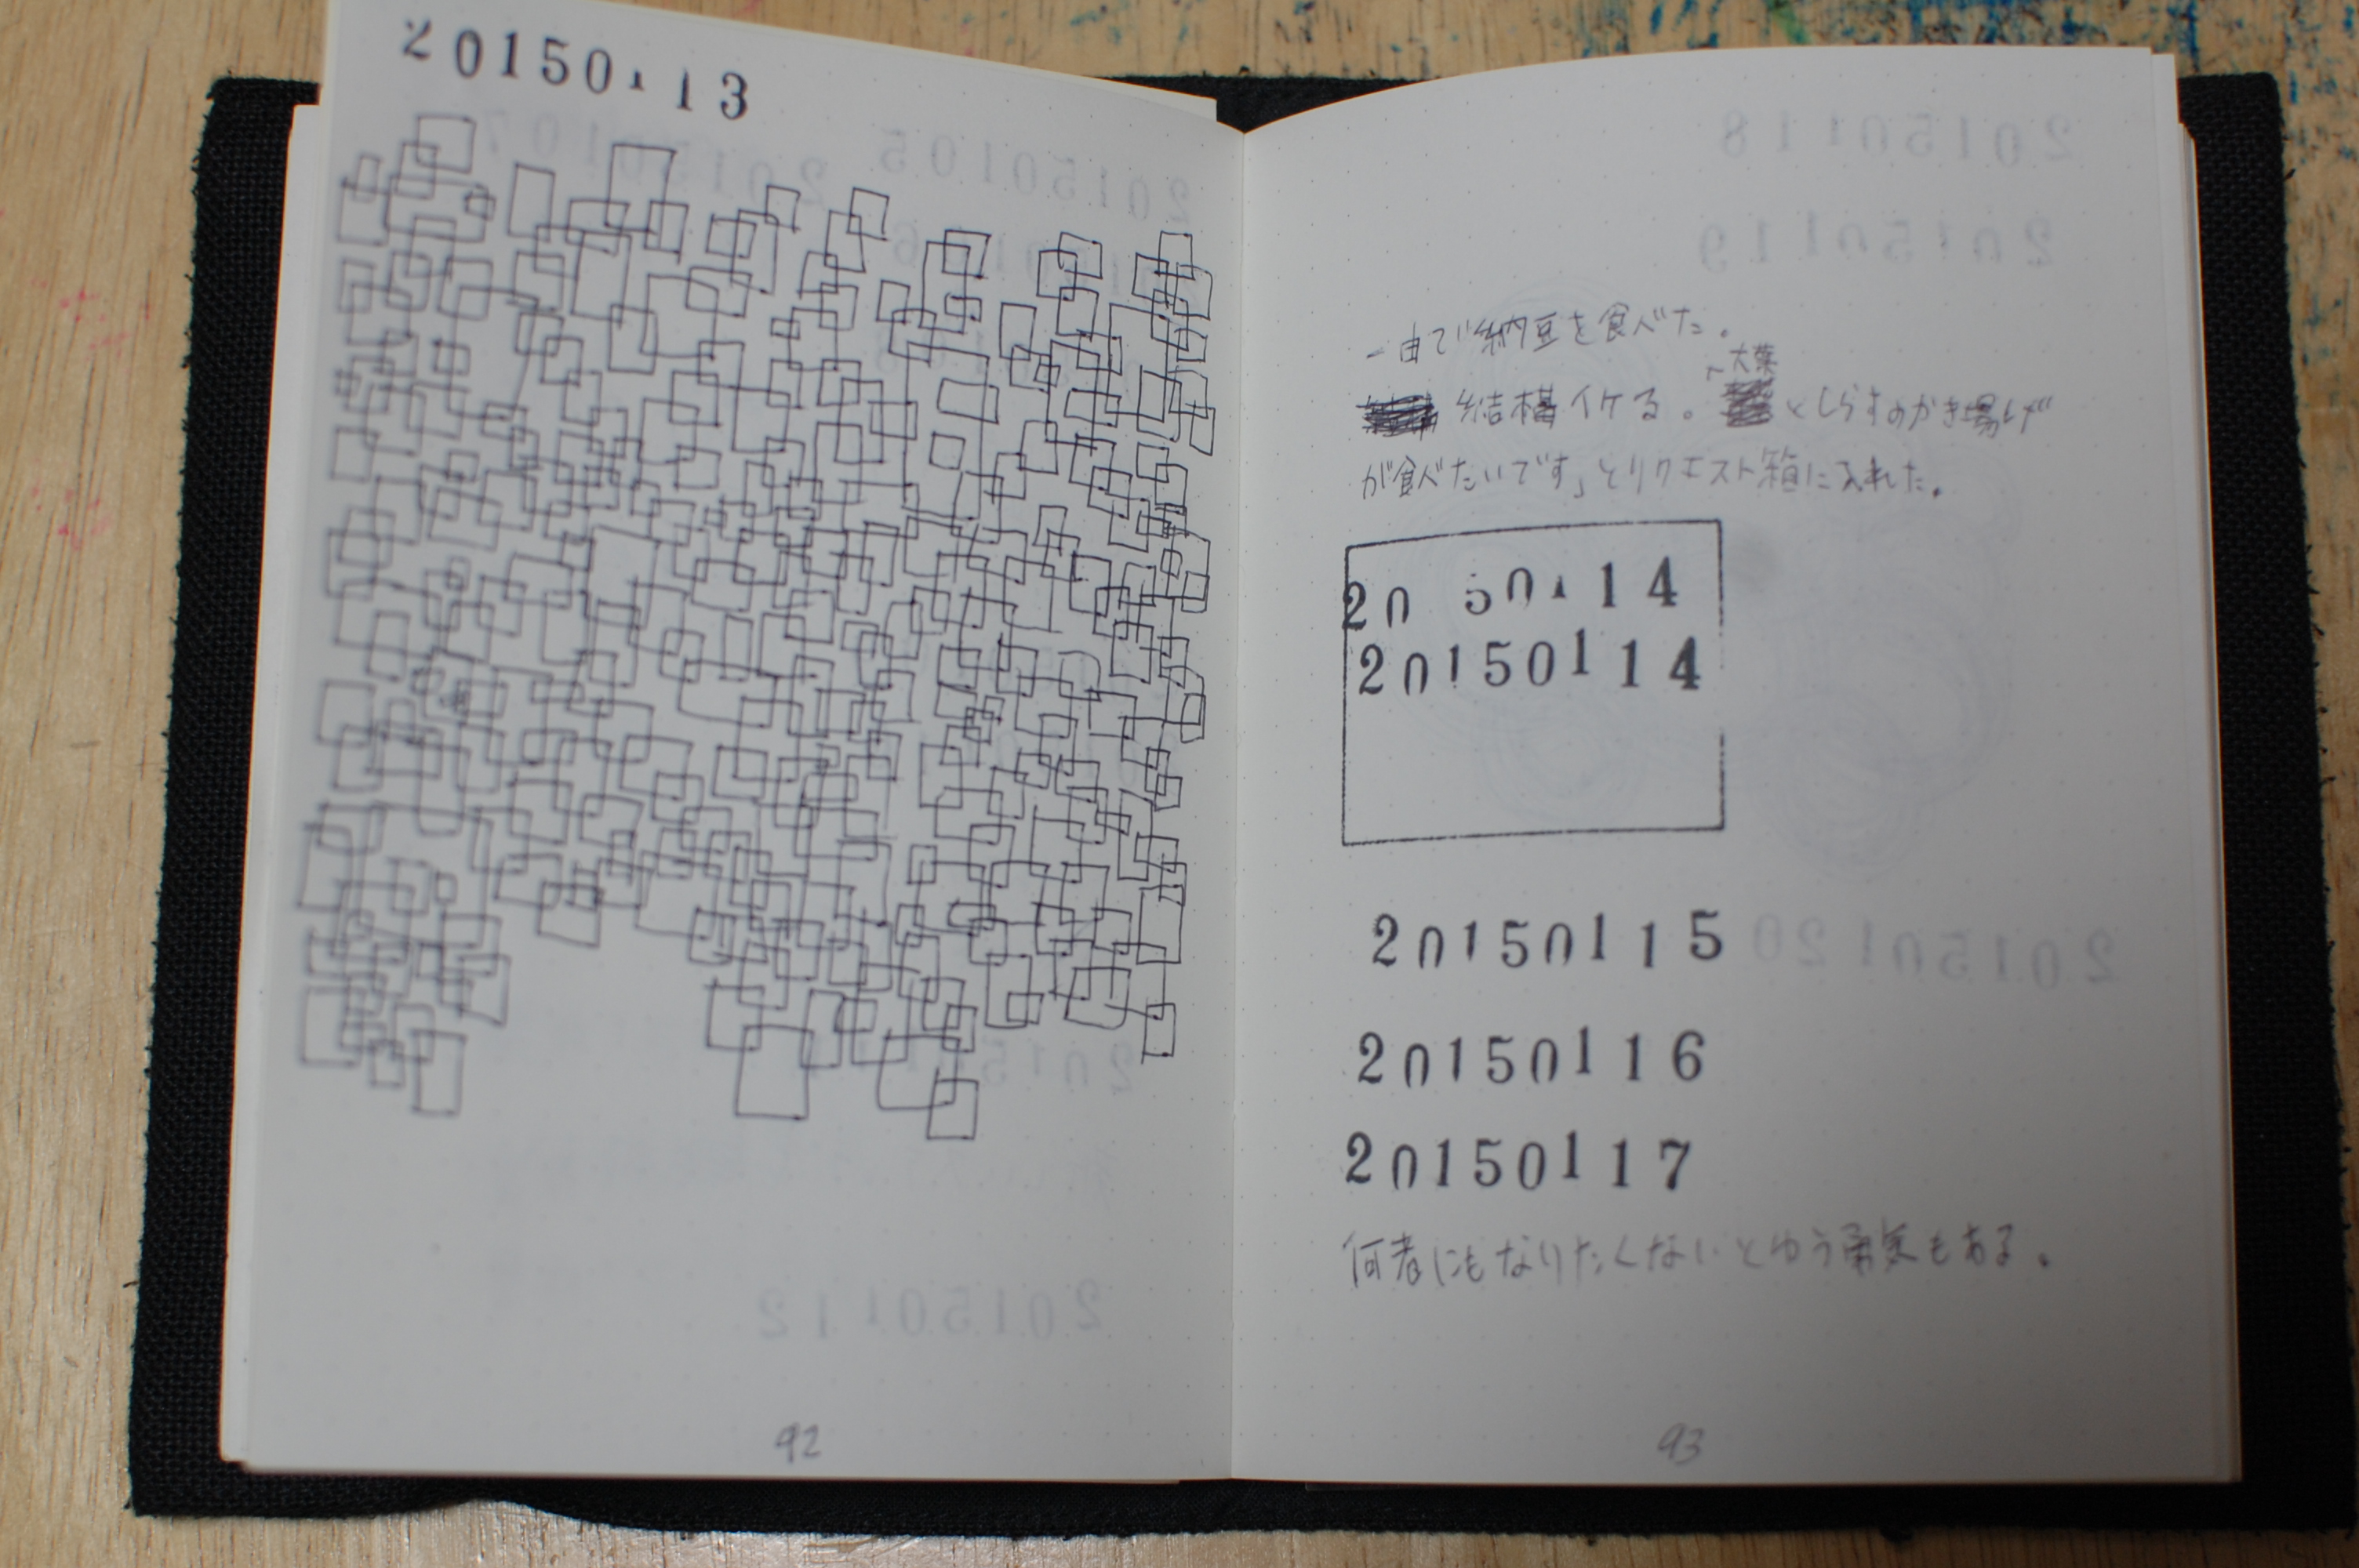 20150113
一由で納豆を食べた。
結構イケる。「大葉としらすのかき揚げ
が食べたいです」とリクエスト箱に入れた。
20150114
20150114
20150115
20150116
20150117
何者にもなりたくないとゆう勇気もある。
92
93